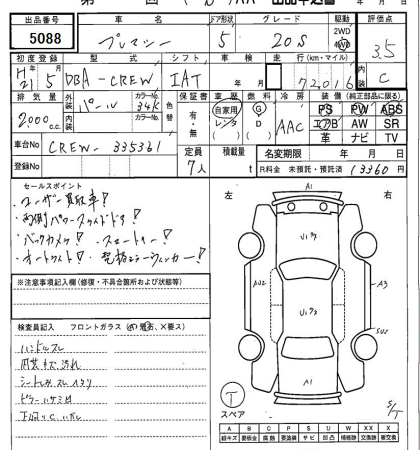 出品番号 車名 ドア形状 グレード 駆動 評価点
5088 プレマシー 5 20S 2WD 4WD 3.5
初度登録 型式 シフト 車検 走行(km・マイル) 内装
H21年5月 DBA-CREW IAT 年 月 72,016 C
排気量 外装色 カラーNo. 色替 保証書 車歴 燃料 冷房 装備(純正部品に限る)
2,000cc パール 34K 有・無 自家用 レンタ G D AAC PS PW ABS
内装色 カラーNo. エアB AW SR
革 ナビ TV
車台No. CREW-335361 定員 7人 積載量 t 名変期限 年 月 日
登録No. R料金 未預託・預託済 13360 円
セールスポイント
・ユーザー買取車!
・両側パワースライドドア!
・バックカメラ!・スマートキー!
・オートライト!・電格ミラーウィンカー!
※注意事項記入欄(修復・不具合箇所および状態等)
検査員記入 フロントガラス
ハンドルスレ
内装キズ汚れ
左 右
A1
U1
A U2 A3
U1
S U2
A1
T
スペア
S/T
A B C P S U W X XX
線キズ 要板金 腐食 要塗装 サビ 凹凸 補修跡 要交換 交換済